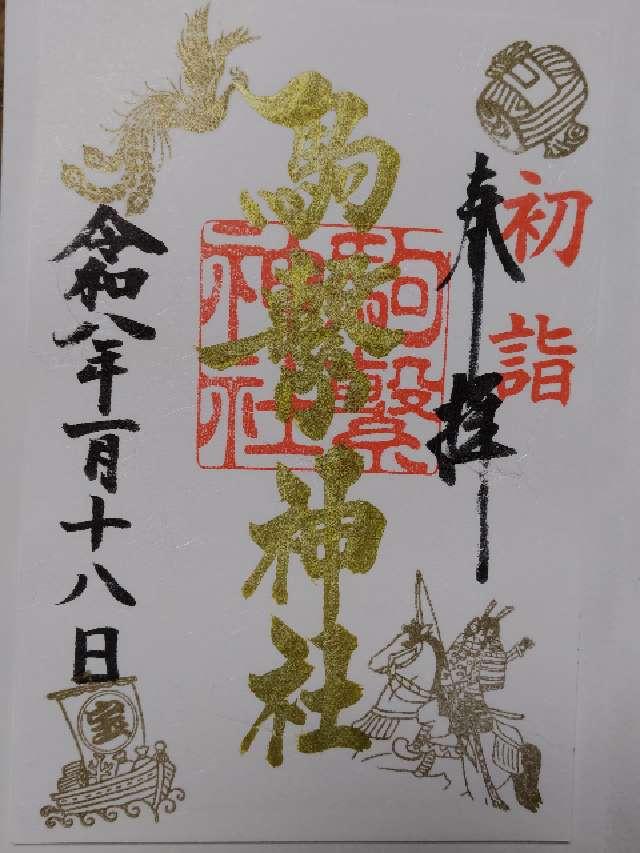 初詣
奉拝
駒繋神社
駒繋神社
令和八年一月十八日
宝